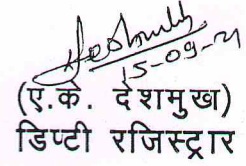 15-09-21
(ए.के. देशमुख)
डिप्टी रजिस्ट्रार